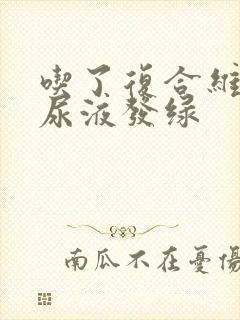 喫了復合維
尿液發綠
南瓜不在憂傷